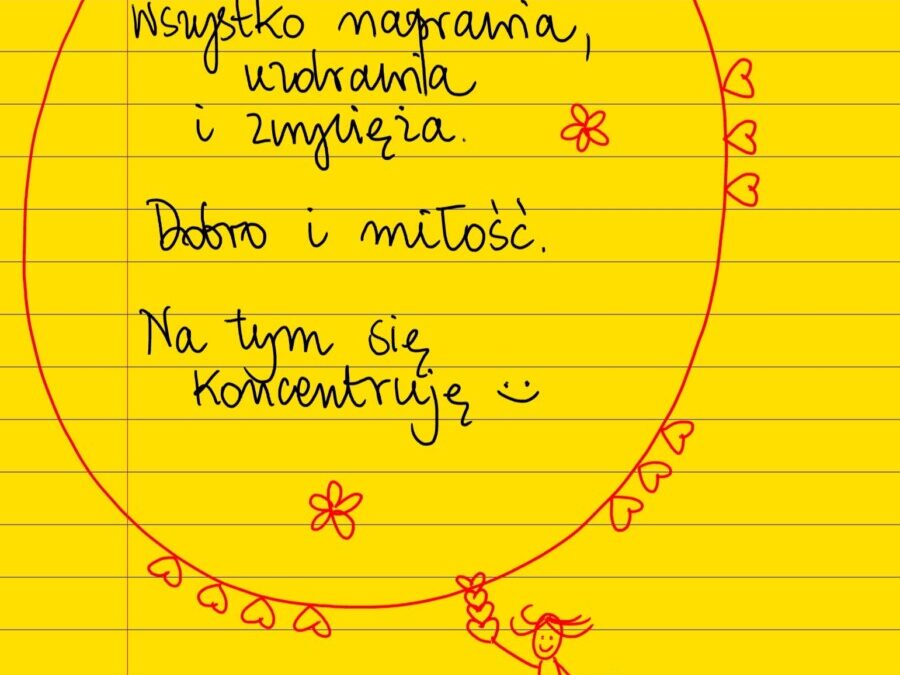 Wszystko naprawia,
uzdrawia
i zwycięża.
Dobro i miłość.
Na tym się
koncentruję :)